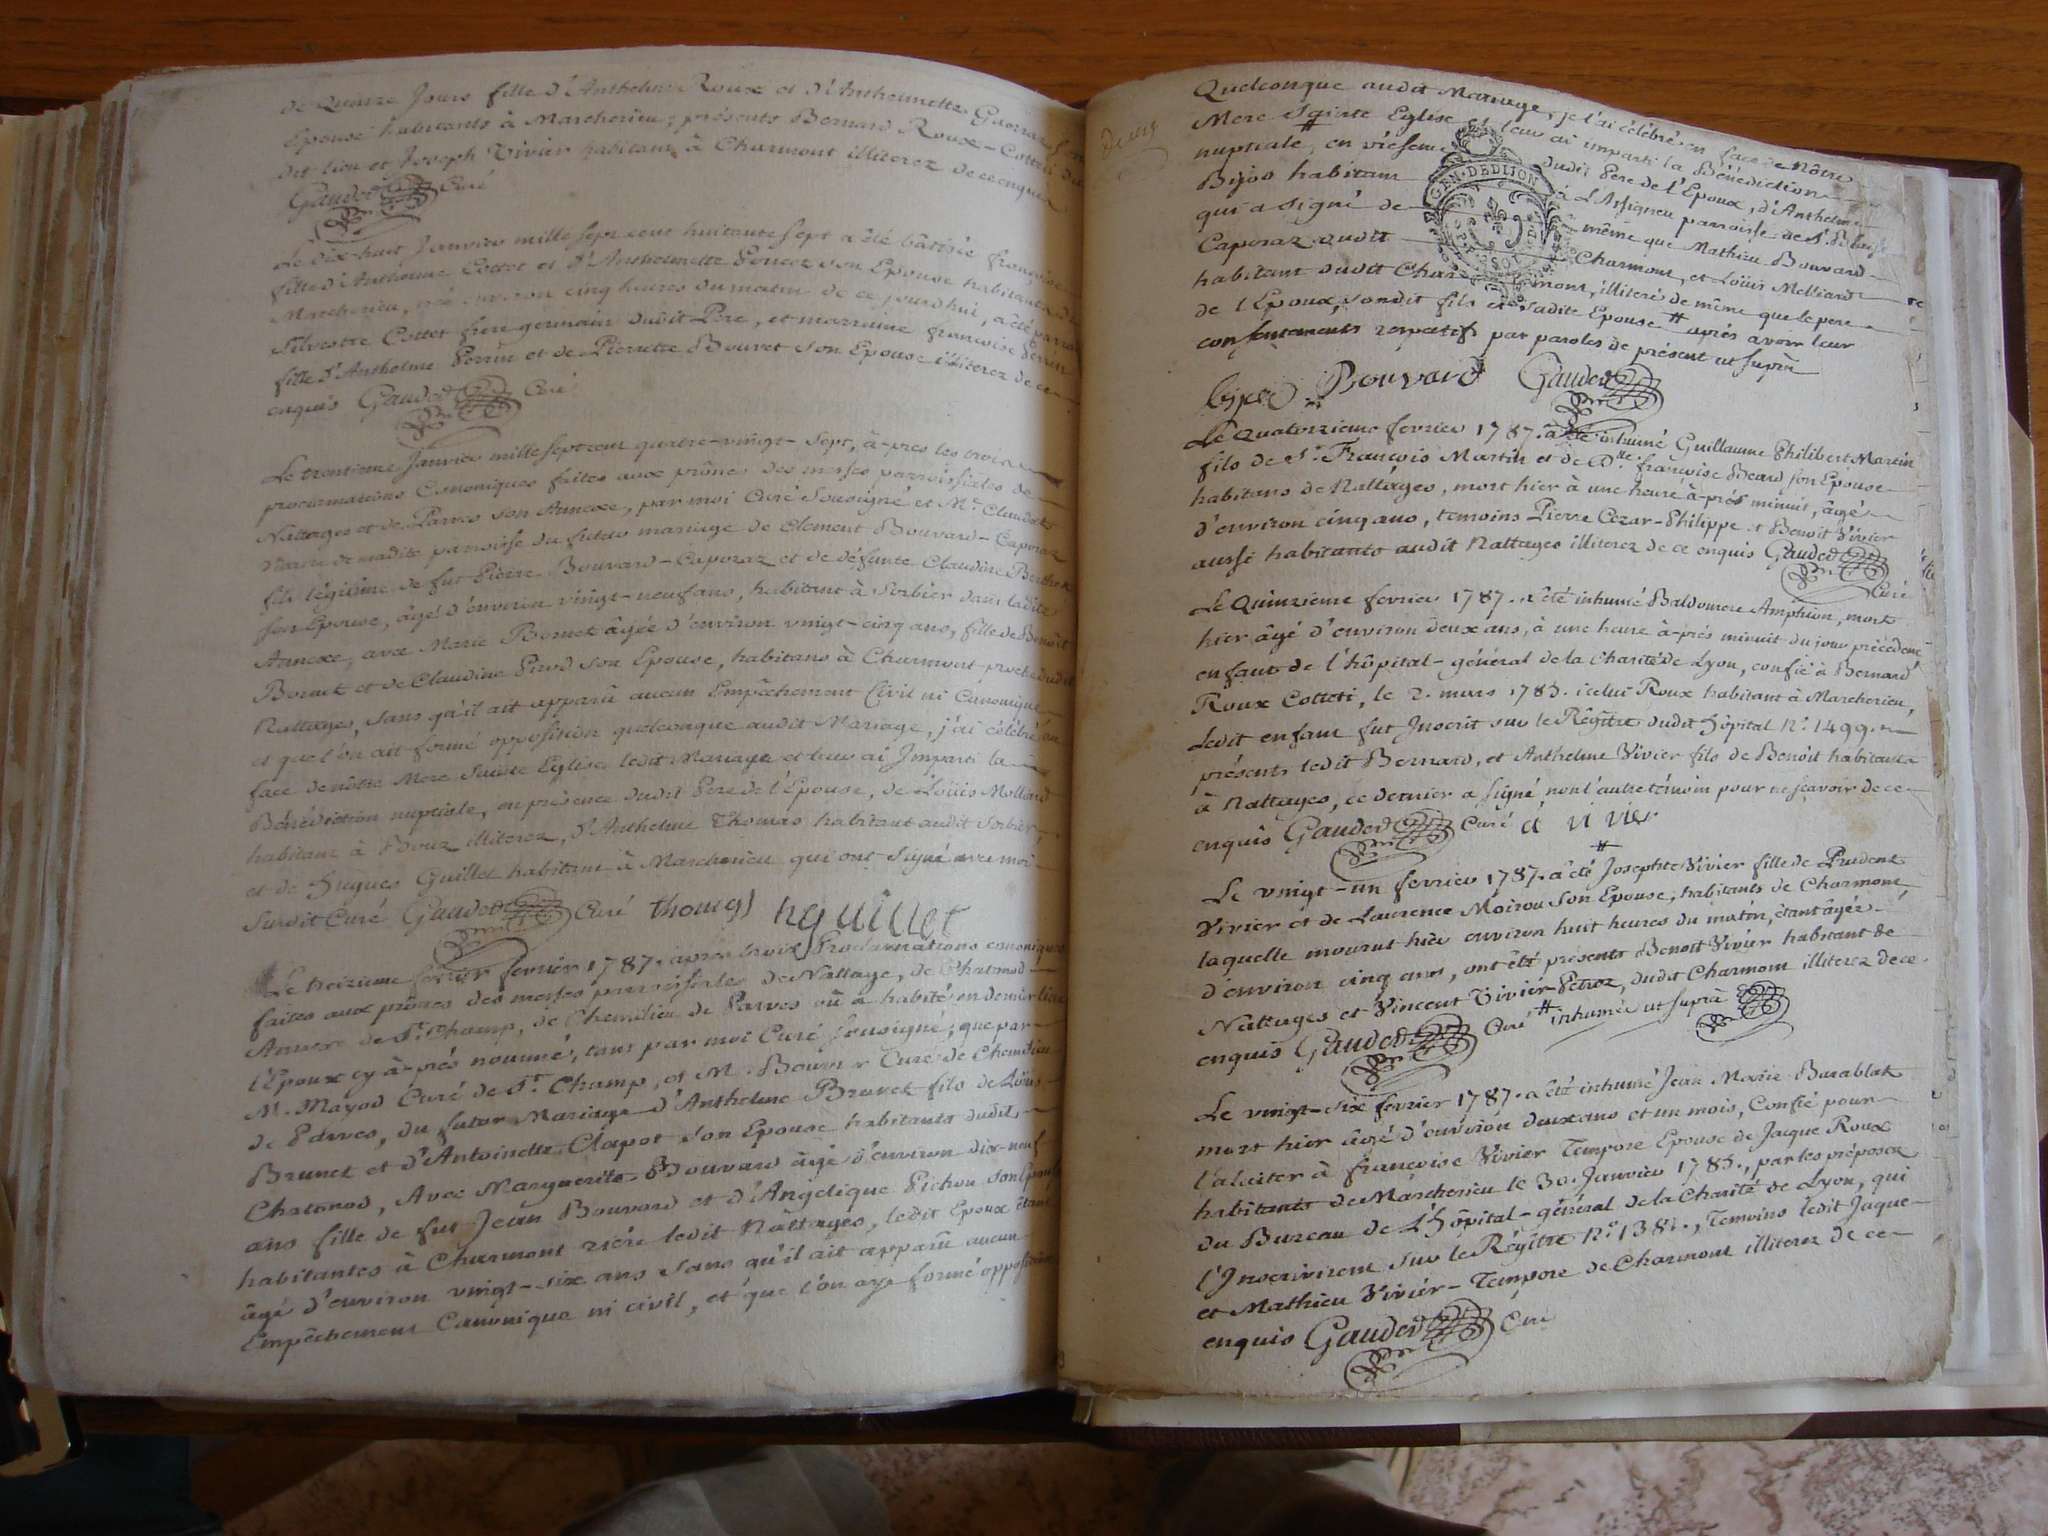 de Quinze Jours fille d'Anthelme Roux et d'Anthelmette
Epouse habitants à Marcherieu; présents Bernard Roux-Cottet du
dit lieu et Joseph Vivier habitant à Charmont illiterez de ce enquis
Gauded Curé
Le dix-huit Janvier mille sept cent huitante sept a été bâtisée françoise
fille d'Anthelme Cottet et d'Anthelmette son Epouse habitants de
Marcherieu, née environ cinq heures du matin de ce jourdhui, a été parrain
Silvestre Cottet frere germain dudit Pere, et marraine francoise Perrin
fille d'Anthelme Perrin et de Pierrette Bouvet son Epouse illiterez de ce
enquis Gauded Curé
Le trentieme Janvier mille sept cent quatre-vingt-sept, à-pres les trois
proclamations Canoniques faites aux prônes des messes paroissiales de
Nattages et de Parves son Annexe, par moi Curé Sousigné et Mr. Claude
Vicaire de madite paroisse du futur mariage de Clement Bouvard-Caporaz
fils légitime de fut Pierre Bouvard-Caporaz et de défunte Claudine
son Epouse, âgé d'environ vingt-neuf ans, habitant à Sorbier dans ladite
Annexe, avec Marie Bornet âgée d'environ vingt-cinq ans, fille de Benoît
Bornet et de Claudine Pirod son Epouse, habitans à Charmont proche dudit
Nattages, sans qu'il ait apparû aucun Empêchement Civil ni Canonique
et que l'on ait formé opposition quelconque audit Mariage, j'ai célébré en
face de nôtre Mere Sainte Eglise ledit Mariage et leur ai Imparti la
Bénédiction nuptiale, en présence dudit Pere de l'Epouse, de Loüis Mollard
habitant à Bouz illiterez, d'Anthelme Thomas habitant audit Sorbier,
et de Hugues Guillet habitant à Marcherieu qui ont signé avec moi
Susdit Curé Gauded Curé thomas hguillet
Le treizieme fevrier 1787. apres trois Proclamations canoniques
faites aux prônes des messes paroissiales de Nattage, de Chatonod
Annexe de St. Champ, de Chemilieu de Parves où a habité en dernier lieu
l'Epoux cy à-près nommé, tant par moi Curé sousigné; que par
M. Mayod Curé de St. Champ, et M. Bouvier Curé de Chemilieu
de Parves, du futur Mariage d'Anthelme Brunet fils de Loüis
Brunet et d'Antoinette Clapot son Epouse habitants dudit
Chatonod, Avec Marguerite Bouvard âgée d'environ dix-neuf
ans fille de fut Jean Bouvard et d'Angélique Pichou son Epouse
habitantes à Charmont rière ledit Nâttages, ledit Epoux étant
âgé d'environ vingt-six ans sans qu'il ait apparû aucun
Empêchement Canonique ni civil, et que l'on aye formé opposition
Quelconque audit Mariage, je l'ai célébré en face de Nôtre
Mere Sainte Eglise et leur ai imparti la Bénédiction
nuptiale, en présence dudit Pere de l'Epoux, d'Anthelme
Bijos habitant à L'Assigneu paroisse de St. Blaise
qui a signé de même que Mathieu Bouvard
Caporaz audit Charmont, et Loüis Melliard
habitant dudit Charmont, illiteré de même que le pere
de l'Epoux, sondit fils et sadite Epouse # après avoir leur
consentements respectifs par paroles de présent ut suprà
GEN. DE DIJON
Bouvard Gauded
Le Quatorzieme fevrier 1787. a été inhumé Guillaume Philibert Martin
fils de Sr. François Martin et de Dlle. françoise Béard son Epouse
habitans de Nattâges, mort hier à une heure à-près minuit, âgé
d'environ cinq ans, temoins Pierre Cezar-Philippe et Benoit Vivier
aussi habitants audit Nattages illiterez de ce enquis Gauded
Curé
Le Quinzieme fevrier 1787. a été inhumé Baldomere Amphion, mort
hier âgé d'environ deux ans, à une heure à-près minuit du jour précédent
enfant de l'hôpital-général de la Charité de Lyon, confié à Bernard
Roux Cotteti, le 2. mars 1785. icelui Roux habitant à Marcherieu,
Ledit enfant fut Inscrit sur le Régitre dudit hôpital No. 1499.
présents ledit Bernard, et Anthelme Vivier fils de Benoît habitants
à Nattages, ce dernier a signé, non l'autre témoin pour ne sçavoir de ce
enquis Gauded Curé a vivier
Le vingt-un fevrier 1787. a été # Josephte Vivier fille de Prudent
Vivier et de Laurence Moirou son Epouse, habitants de Charmont,
laquelle mourut hier environ huit heures du matin, étant âgée
d'environ cinq ans, ont été présents Benoit Vivier habitant de
Nâttages et Vincent Vivier-Petroz, dudit Charmont illiterez de ce
enquis Gauded Curé # inhumée ut suprà
Le vingt-six fevrier 1787. a été inhumé Jean Marie Barablat
mort hier âgé d'environ deux ans et un mois, Confié pour
l'alaiter à françoise Vivier Tempore Epouse de Jaque Roux
habitants de Marcherieu le 30. Janvier 1785., par les préposez
du Bureau de L'hôpital-général de la Charité de Lyon, qui
l'Inscrivirent sur le Régître No. 1381., Temoins ledit Jaque
et Mathieu Vivier-Tempore de Charmont illiterez de ce
enquis Gauded Curé